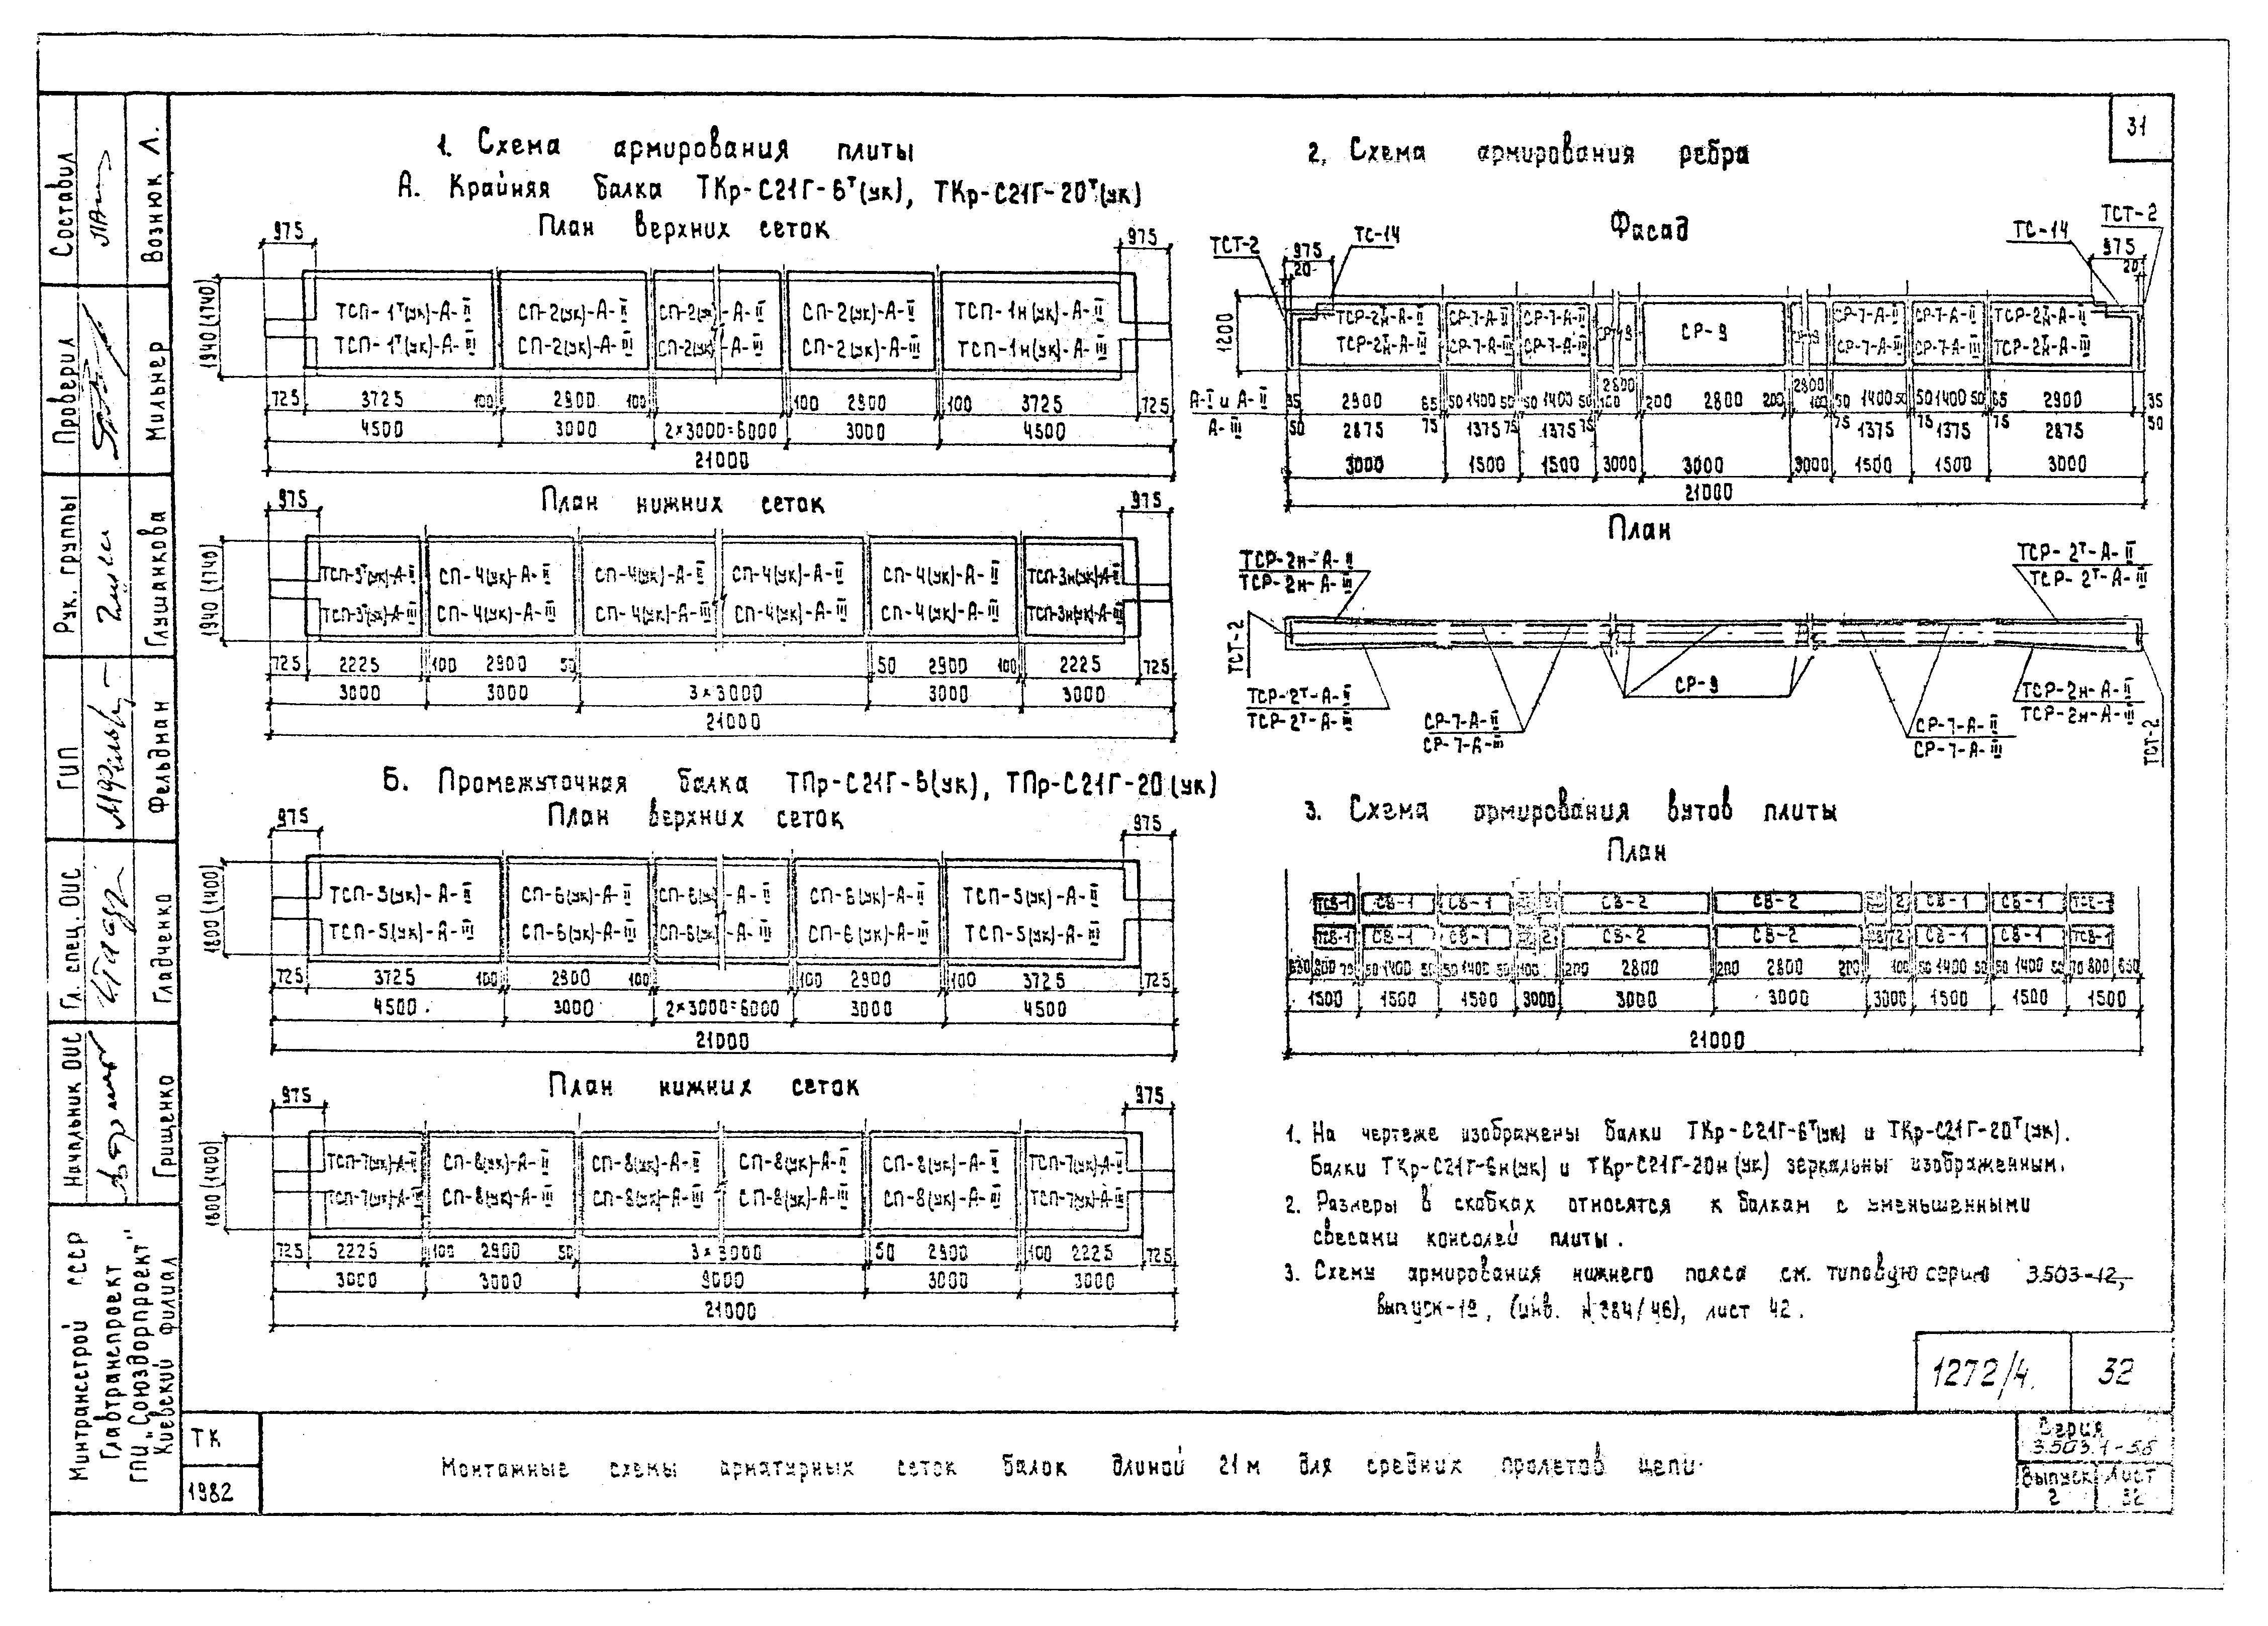 31
1. Схема армирования плиты
А. Крайняя балка ТКр-С21Г-6ᵀ(ук), ТКр-С21Г-20ᵀ(ук)
План верхних сеток
975 975
1940 (1740)
ТСП-1ᵀ(ук)-А-II СП-2(ук)-А-II СП-2(ук)-А-II СП-2(ук)-А-II ТСП-1н(ук)-А-II
ТСП-1ᵀ(ук)-А-III СП-2(ук)-А-III СП-2(ук)-А-III СП-2(ук)-А-III ТСП-1н(ук)-А-III
725 3725 100 2900 100 100 2900 100 3725 725
4500 3000 2×3000=6000 3000 4500
21000
План нижних сеток
975 975
1940 (1740)
ТСП-3ᵀ(ук)-А-II СП-4(ук)-А-II СП-4(ук)-А-II СП-4(ук)-А-II СП-4(ук)-А-II ТСП-3н(ук)-А-II
ТСП-3ᵀ(ук)-А-III СП-4(ук)-А-III СП-4(ук)-А-III СП-4(ук)-А-III СП-4(ук)-А-III ТСП-3н(ук)-А-III
725 2225 100 2900 50 50 2900 100 2225 725
3000 3000 3×3000 3000 3000
21000
Б. Промежуточная балка ТПр-С21Г-6(ук), ТПр-С21Г-20(ук)
План верхних сеток
975 975
1800 (1400)
ТСП-5(ук)-А-II СП-6(ук)-А-II СП-6(ук)-А-II СП-6(ук)-А-II ТСП-5(ук)-А-II
ТСП-5(ук)-А-III СП-6(ук)-А-III СП-6(ук)-А-III СП-6(ук)-А-III ТСП-5(ук)-А-III
725 3725 100 2900 100 100 2900 100 3725 725
4500 3000 2×3000=6000 3000 4500
21000
План нижних сеток
975 975
1800 (1400)
ТСП-7(ук)-А-II СП-8(ук)-А-II СП-8(ук)-А-II СП-8(ук)-А-II СП-8(ук)-А-II ТСП-7(ук)-А-II
ТСП-7(ук)-А-III СП-8(ук)-А-III СП-8(ук)-А-III СП-8(ук)-А-III СП-8(ук)-А-III ТСП-7(ук)-А-III
725 2225 100 2900 50 3×3000 50 2900 100 2225 725
3000 3000 9000 3000 3000
21000
2. Схема армирования ребра
Фасад
ТСТ-2 975 ТС-14 ТС-14 975 ТСТ-2
20 20
1200
СР-7-А-II СР-7-А-II СР-7-А-II СР-7-А-II
СР-9
СР-7-А-III СР-7-А-III СР-7-А-III СР-7-А-III
2800 2800
А-I и А-II 35 2900 65 50 1400 50 50 1400 50 100 200 2800 200 100 50 1400 50 50 1400 50 65 2900 35
А-III 50 2875 75 1375 75 1375 75 75 1375 75 1375 75 2875 50
3000 1500 1500 3000 3000 3000 1500 1500 3000
21000
План
ТСР-2н-А-II ТСР-2ᵀ-А-II
ТСР-2н-А-III ТСР-2ᵀ-А-III
ТСТ-2
СР-9
ТСР-2ᵀ-А-II ТСР-2н-А-II
ТСР-2ᵀ-А-III ТСР-2н-А-III
СР-7-А-II СР-7-А-II
СР-7-А-III СР-7-А-III
ТСТ-2
3. Схема армирования вутов плиты
План
ТСВ-1 СВ-1 СВ-1 СВ-2 СВ-2 СВ-1 СВ-1 ТСВ-1
ТСВ-1 СВ-1 СВ-1 СВ-2 СВ-2 СВ-1 СВ-1 ТСВ-1
630 800 70 50 1400 50 50 1400 50 100 200 2800 200 2800 200 100 50 1400 50 50 1400 50 70 800 630
1500 1500 1500 3000 3000 3000 3000 1500 1500 1500
21000
1. На чертеже изображены балки ТКр-С21Г-6ᵀ(ук) и ТКр-С21Г-20ᵀ(ук).
Балки ТКр-С21Г-6н(ук) и ТКр-С21Г-20н(ук) зеркальны изображенным.
2. Размеры в скобках относятся к балкам с уменьшенными
свесами консолей плиты.
3. Схемы армирования нижнего пояса см. типовую серию 3.503-12,
выпуск-19, (инв. №384/46), лист 42.
1272/4 32
ТК
1982
Монтажные схемы арматурных сеток балок длиной 21м для средних пролетов цепи.
Серия
3.503.1-58
Выпуск Лист
2 32
Составил Вознюк Л.
Проверил Мильнер
Рук. группы Глушанкова
ГИП Фельдман
Гл. спец. ОИС Гладченко
Начальник ОИС Грищенко
Минтрансстрой СССР
Главтранспроект
ГПИ „Союздорпроект"
Киевский филиал